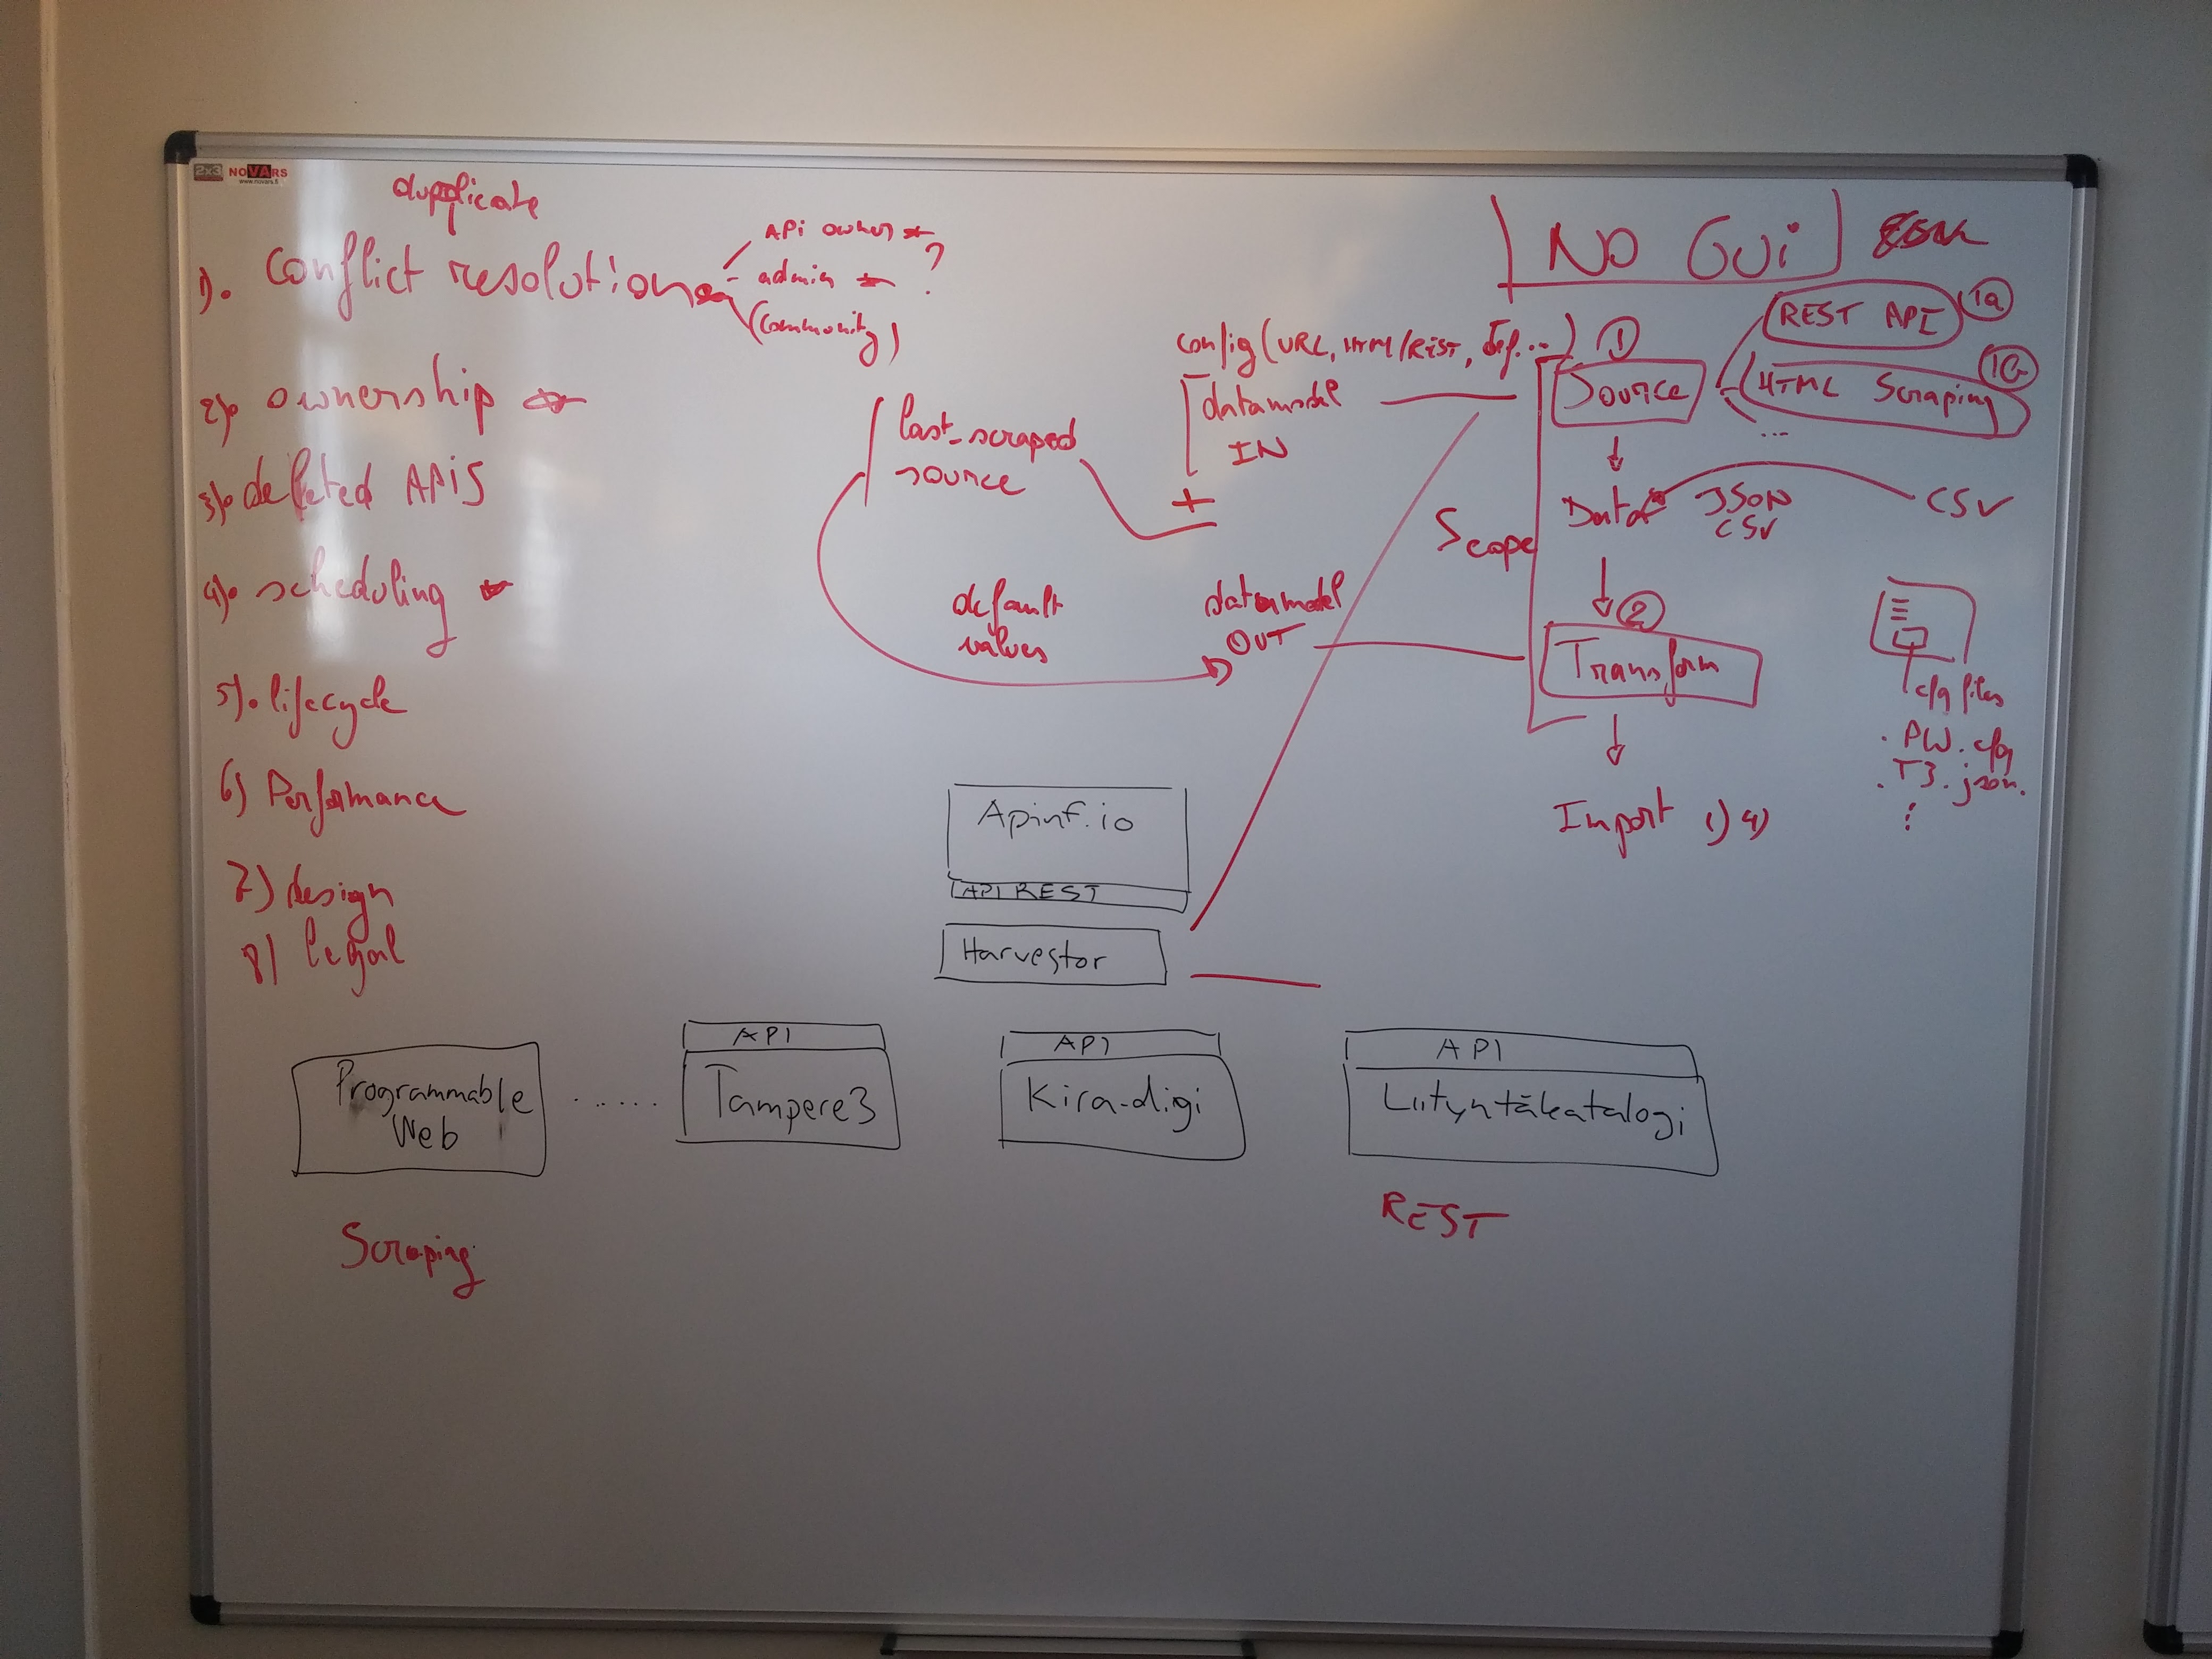 2x3 NOVARS
www.novars.fi
duplicate
1). Conflict resolution
API owner
- admin
?
(community)
2). ownership
3). deleted APIS
4). scheduling
5). lifecycle
6) Performance
7) design
8) legal
last_scraped
source
default
values
config (URL, HTML/REST, def...)
datamodel
IN
+
datamodel
OUT
NO GUI
1
Source
REST API
1a
HTML Scraping
...
Scope
Data
JSON
CSV
CSV
2
Transform
Import 1) 4)
cfg files
. PW.cfg
. T3.json.
Apinf.io
API REST
Harvestor
Programmable
Web
......
API
Tampere3
API
Kira-digi
API
Liityntäkatalogi
Scraping
REST